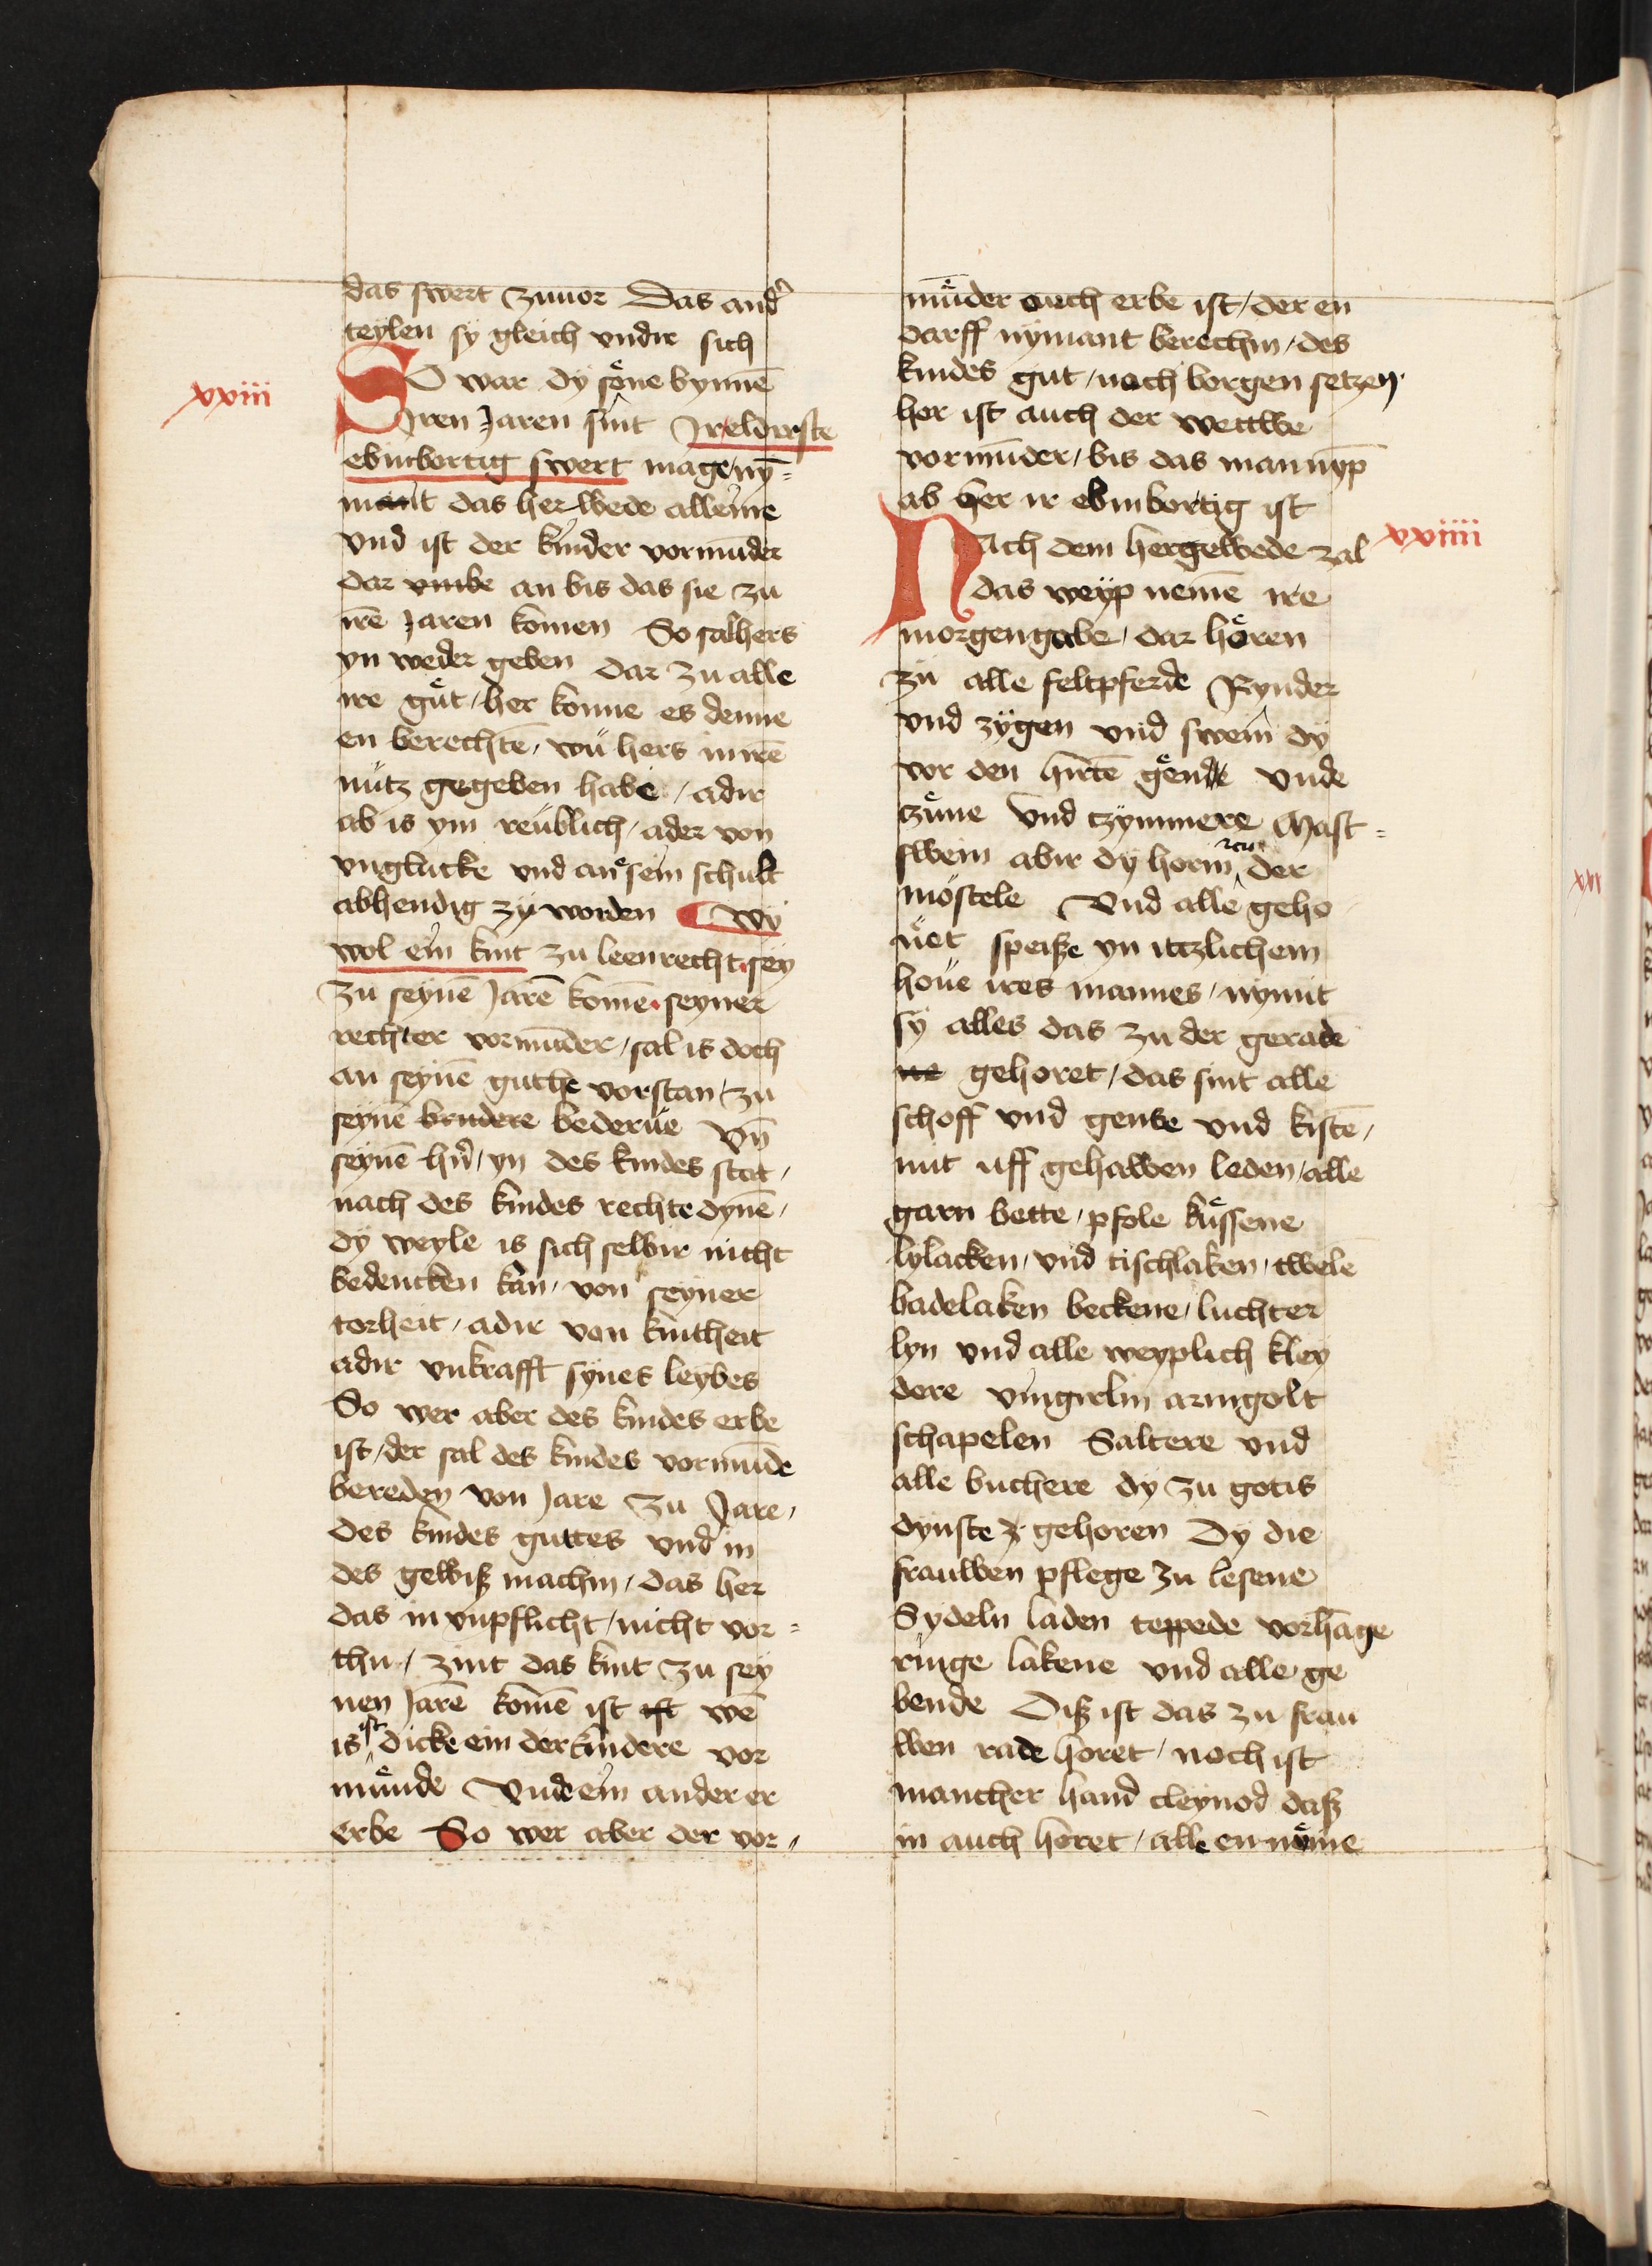 das swert zuuor Das andr̉
teylen sy gleich vndir sich
xxiii
SO war dy soͤne bynnē
Iren Jaren sint Ireldirste
ebinbortig swert mage ny=
mant das her wede alleine
vnd ist der kinder vormūder
dar vmbe an bis das sie zu
irē Jaren komen So sal hers
yn weder geben dar zu alle
ire guͤt / her konne es denne
en berechtē / wu hers in irē
nutz gegeben habe / adir
ab is ym reublich / ader von
vnglucke vnd an sein schult
abhendig zy worden Wy
wol ein kint zu leenrecht sey
zu seynē Jarē komē seyner
rechter vormūder / sal is doch
an seynē guthe vorstan / zu
seynē brudere bederue vn̄
seynē hr̄n / yn des kindes stat /
nach des kindes rechte dynē /
dy weyle is sich selbir nicht
bedencken kan / von seyner
torheit / adir von kintheit
adir vnkrafft synes leybes
So wer aber des kindes erbe
ist / der sal des kindes vormūde
bereden von Jare zu Jare /
des kindes guttes vnd in
des gewisz machin / das her
das in vnpflicht / nicht vor=
thu / zint das kint zu sey
nen Jarē komē ist ist wē
is ist dicke ein der kindere vor
muͤnde Vnde ein ander er
erbe So wer aber der vor=
muͤder ouch erbe ist / der en
darff nymant berechin / des
kindes gut / nach borgen setzen
her ist auch der wettwe
vormūder / bis das man nyp
ab her ir ebinbortig ist
xxiiii
Nach dem hergewede zal
das weyp nemē ire
morgengabe / dar hoͤren
zu alle feltpferde Rynder
vnd zygen vnd swein dy
vor den hirtē geͤnde vnde
czuͤne vnd czymmere Mast=
swein abir dy horin der
mostele Vnd alle geho
uet speisze yn itzlichem
houe ires mannes / nymt
sy alles das zu der gerade
ne gehoret / das sint alle
schoff vnd gense vnd kistē /
mit uff gehawen leden / alle
garn bette / pfole kuͤssene
lylacken / vnd tischlaken / twele
badelaken beckene / luchter
lyn vnd alle weyplich kley
dere vingirlin armgolt
schapelen Saltere vnd
alle buchere dy zu gotis
dynste z gehoren Dy die
frauwen pflege zu lesene
Sydeln laden teppede vorhāge
ringe lakene vnd alle ge
bende Disz ist das zu frau
wen rade horet / noch ist
mancher hand cleynod dasz
in auch horet / alle en noͤme